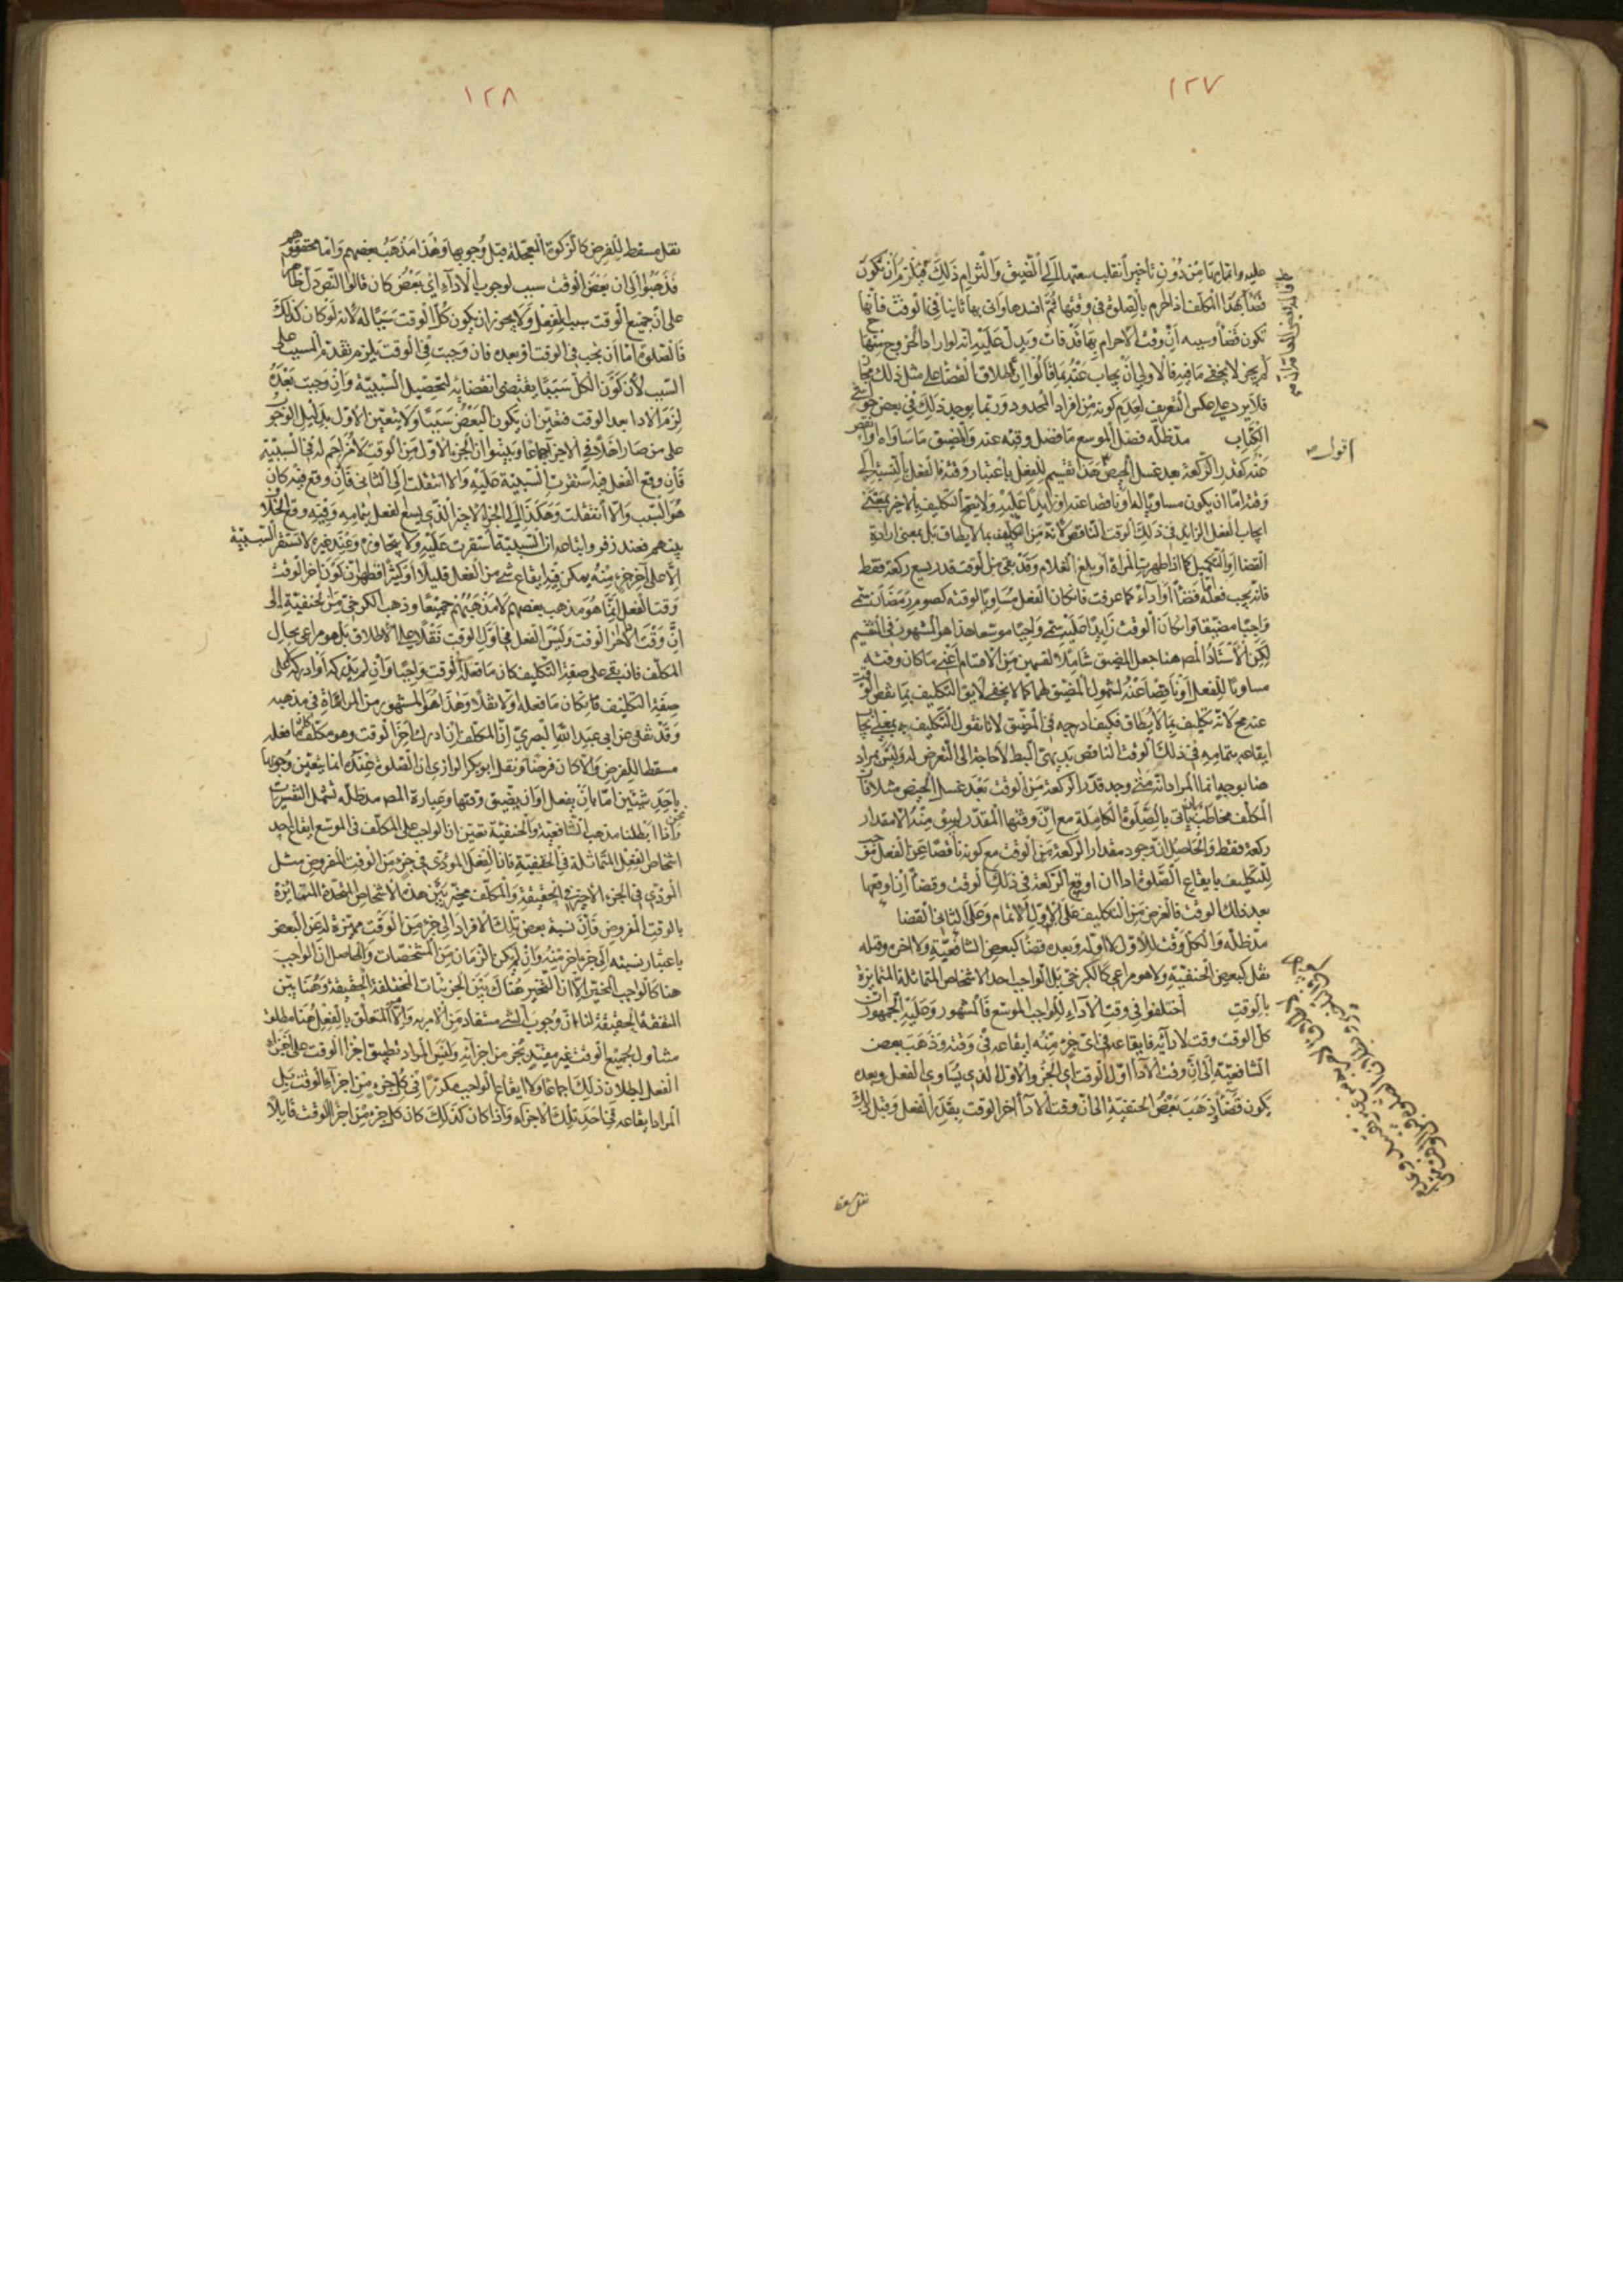 ١٢٧
عليه واتمامها من دون تأخير انقلب سعتها الى الضيق والتزام ذلك فيلزم ان تكون
قضاء بهذا المكلف اذا احرم بالصلوة في وقتها ثم افسدها واتى بها ثانيا في الوقت فانها
تكون قضاء وسببه ان وقت الاحرام بها قد فات ويدل عليه انه لو اراد الخروج منها
لم يجز لا يخفى ما فيه فالاولى ان يجاب عنه بما قالوا ان اطلاق القضا على مثل ذلك مجاز
فلا يرد على عكس التعريف لعدم كونه من افراد المحدود وربما يوجد ذلك في بعض حواشي
الكتاب مد ظله فصل الموسع ما فضل وقته عنه والمضيق ما ساواه او نقص
عنه كقدر الركعة بعد غسل الحيض هذا تقسيم للفعل باعتبار وقته فالفعل بالنسبة الى
وقته اما ان يكون مساويا له او ناقصا عنه او زايدا عليه ولا يقع التكليف بالاخير بمعنى
ايجاب الفعل الزايد في ذلك الوقت الناقص لانه من التكليف بما لا يطاق بل بمعنى ارادة
القضا او التكميل كما اذا طهرت المراة او بلغ الغلام وقد بقي من الوقت قدر يسع ركعة فقط
فانه يجب فعله قضاء او اداء كما عرفت فان كان الفعل مساويا لوقته كصوم رمضان سمي
واجبا مضيقا وان كان الوقت زايدا عليه سمي واجبا موسعا هذا هو المشهور في التقسيم
لكن الاستاذ المص هنا جعل المضيق شاملا لقسمين من الاقسام اعني ما كان وقته
مساويا للفعل او ناقصا عنه لشمول المضيق لهما كما لا يخفى لا يق التكليف بما نقص وقته
عنه مح لانه تكليف بما لا يطاق فكيف ادرجه في المضيق لانا نقول التكليف به بمعنى ايجاب
ايقاعه بتمامه في ذلك الوقت الناقص بديهي البطلان لا حاجة الى التعرض له وليس بمراد
هنا بوجه انما المراد انه متى وجد قدر الركعة من الوقت بعد غسل الحيض مثلا فان
المكلف مخاطب بان ياتي بالصلوة الكاملة مع ان وقتها المقدر لم يبق منه الا مقدار
ركعة فقط والحاصل ان وجود مقدار الركعة من الوقت مع كونه ناقصا عن الفعل موجب
للتكليف بايقاع الصلوة اداء ان اوقع الركعة في ذلك الوقت وقضاء ان اوقعها
بعد ذلك الوقت فالغرض من التكليف على الاول الاتمام وعلى الثاني القضا
مد ظله والكل وقت للاول لا اوله وبعده قضا كبعض الشافعية ولا اخره وقبله
نفل كبعض الحنفية ولا هو مراعي كالكرخي بل الواجب احد الاشخاص المتماثلة المتمايزة
بالوقت اختلفوا في وقت الاداء للواجب الموسع فالمشهور وعليه الجمهور ان
كل الوقت وقت لادائه فايقاعه في اي جزء منه ايقاعه في وقته وذهب بعض
الشافعية الى ان وقت الاداء اول الوقت اي الجزء الاول الذي يساوي الفعل وبعده
يكون قضاء وذهب بعض الحنفية الى ان وقت الاداء اخر الوقت بقدر الفعل وقبل ذلك
نفل مسقط
اقول
١٢٨
نفل مسقط للفرض كالزكوة المعجلة قبل وجوبها وهذا مذهب بعضهم واما محققوهم
فذهبوا الى ان بعض الوقت سبب لوجوب الاداء اي بعض كان قالوا النص دل ظاهرا
على ان جميع الوقت سبب للفعل ولا يجوز ان يكون كل الوقت سببا له لانه لو كان كذلك
فالصلوة اما ان تجب في الوقت او بعده فان وجبت في الوقت يلزم تقدم المسبب على
السبب لان كون الكل سببا يقتضي انقضائه لتحصيل السببية وان وجبت بعده
لزم الاداء بعد الوقت فتعين ان يكون البعض سببا ولا يتعين الاول بدليل الوجوب
على من صار اهلا في الاخر اجماعا وبينوا ان الجزء الاول من الوقت لا مزاحم له في السببية
فان وقع الفعل فيه استقرت السببية عليه والا انتقلت الى الثاني فان وقع فيه كان
هو السبب والا انتقلت وهكذا الى الجزء الاخير الذي يسع الفعل بتمامه وفيه وقع الخلاف
بينهم فعند زفر واتباعه ان السببية استقرت عليه ولا يتجاوزه وعند غيره لا تستقر السببية
الا على اخر جزء منه يمكن فيه ايقاع شئ من الفعل قليلا او كثيرا فظهر ان كون اخر الوقت
وقت الفعل انما هو مذهب بعضهم لا مذهبهم جميعا وذهب الكرخي من الحنفية الى
ان وقت الاداء اخر الوقت وليس الفعل في اول الوقت نفلا على الاطلاق بل هو مراعى بحال
المكلف فان بقي على صفة التكليف كان ما فعله اول الوقت واجبا وان لم يدركه او ادركه لا على
صفة التكليف فان كان ما فعله اولا نفلا وهذا هو المشهور من المراعاة في مذهبه
وقد نقل عن ابي عبد الله البصري ان المكلف ان ادرك اخر الوقت وهو مكلف كان ما فعله
مسقطا للفرض والا كان فرضا ونقل ابو بكر الرازي ان الصلوة عنده انما يتعين وجوبها
باحد شيئين اما بان يفعل او ان يضيق وقتها وعبارة المص مد ظله تشمل التفسيرات
واذا ابطلنا مذهب الشافعية والحنفية تعين ان الواجب على المكلف في الموسع ايقاع احد
اشخاص الفعل المتماثلة في الحقيقة فان الفعل المؤدي في جزء من الوقت المفروض مثل
المودي في الجزء الاخر في الحقيقة والمكلف مخير بين هذه الاشخاص المتحدة المتمايزة
بالوقت المفروض فان نسبة بعض تلك الافراد الى جزء من الوقت مميزة له عن البعض
باعتبار نسبته الى جزء اخر منه وان لم يكن الزمان من المشخصات والحاصل ان الواجب
هنا كالواجب المخير الا ان التخيير هناك بين الجزئيات المختلفة الحقيقة وهنا بين
المتفقة الحقيقة لنا ان وجوب الشئ مستفاد من الامر به والامر المتعلق بالفعل هنا مطلق
متناول لجميع الوقت غير مقيد بجزء من اجزائه وليس المراد تطبيق اجزاء الوقت على اجزاء
الفعل لبطلان ذلك اجماعا ولا ايقاع الواجب مكررا في كل جزء من اجزاء الوقت بل
المراد ايقاعه في احد تلك الاجزاء واذا كان كذلك كان كل جزء من اجزاء الوقت قابلا